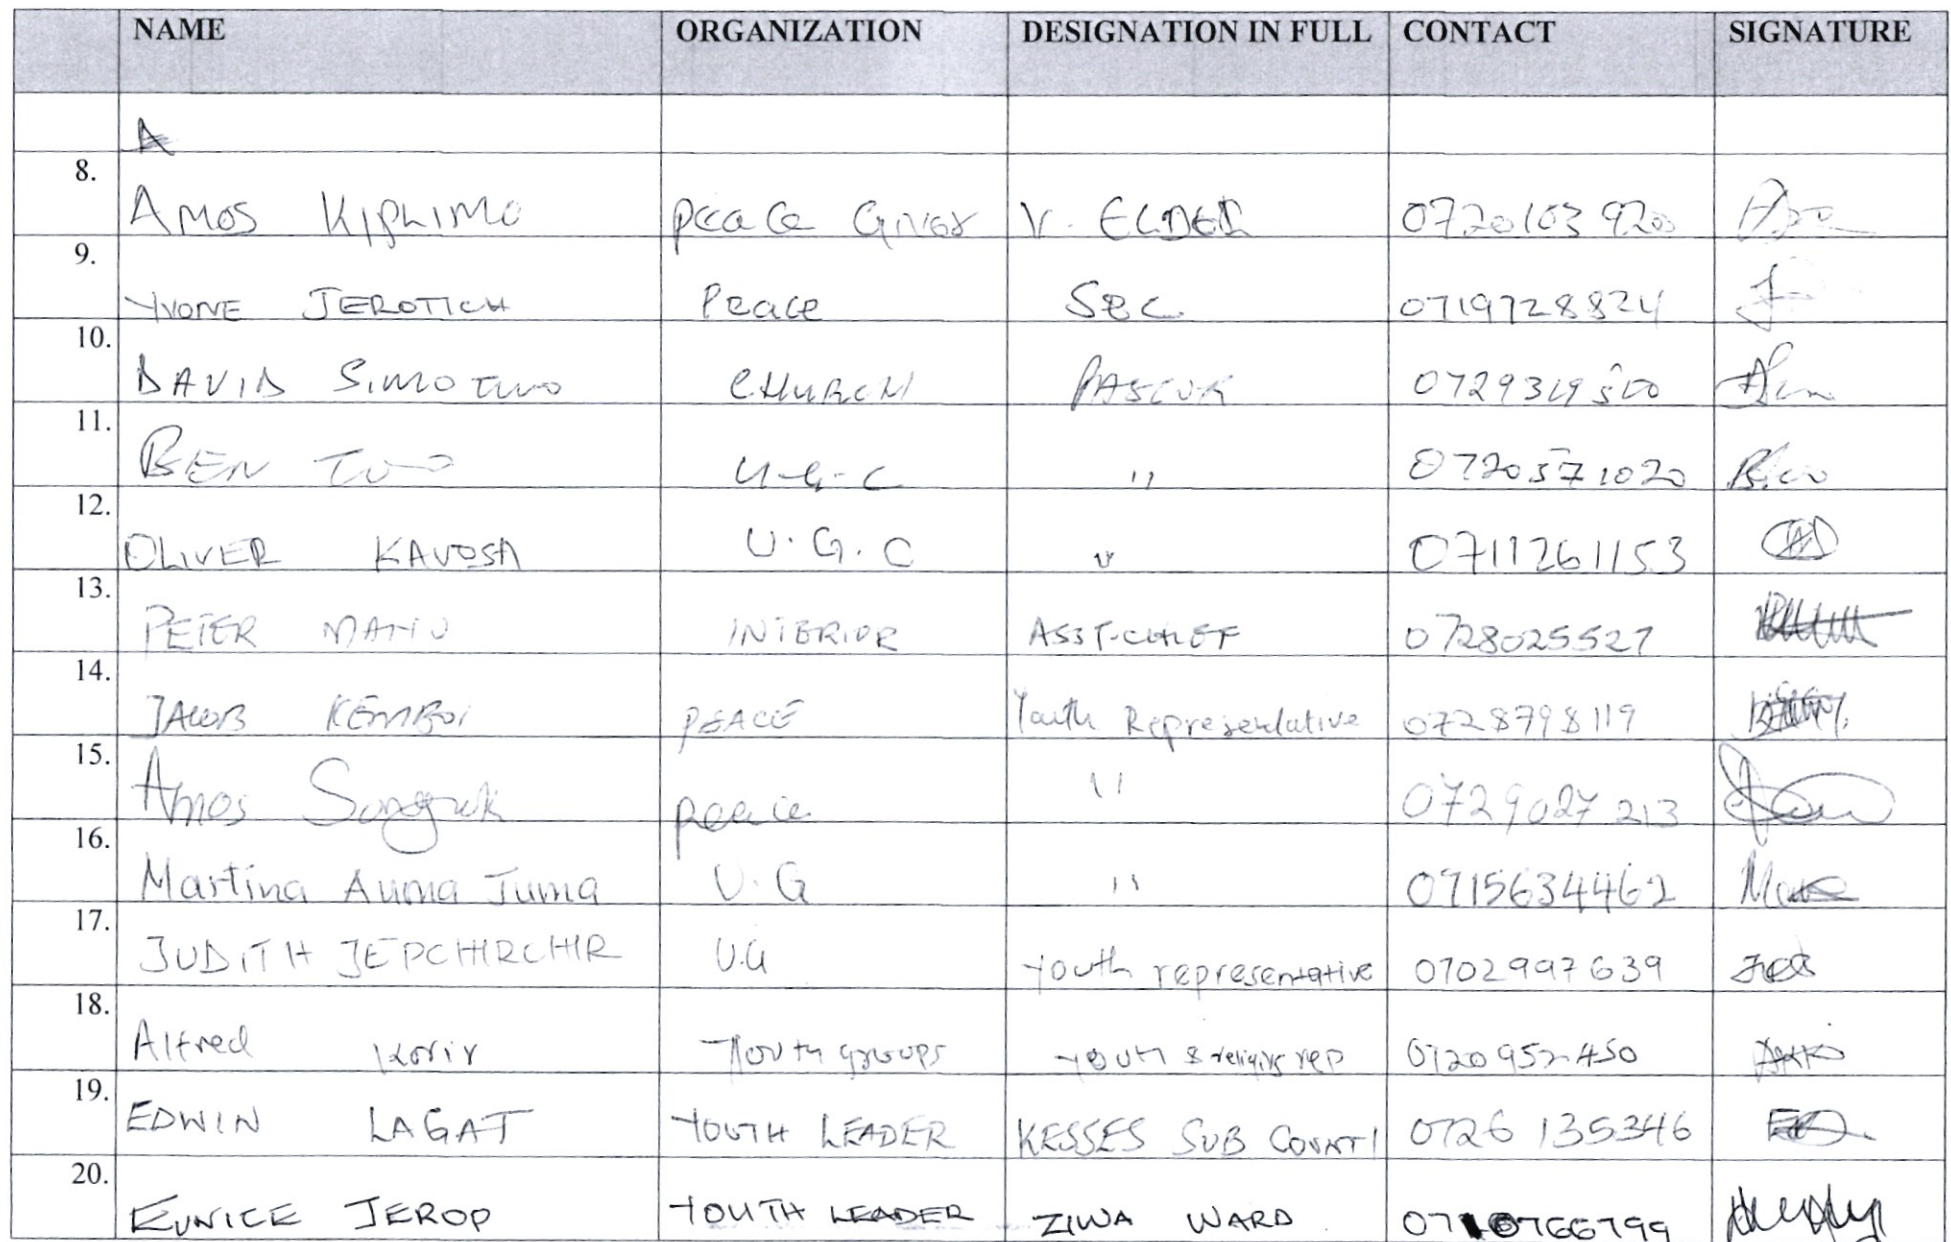 NAME ORGANIZATION DESIGNATION IN FULL CONTACT SIGNATURE
A
8. AMOS KIPLIMO peace Giver V. ELDER 0720103920
9. YVONE JEROTICH Peace SEC 0719728824
10. DAVID SIMOTWO CHURCH PASTOR 0729319500
11. BEN TWO U.G.C " 0720571020
12. OLIVER KAVOSA U.G.C " 0711261153
13. PETER INTERIOR ASST-CHIEF 0728025527
14. JACOB KEMBOI PEACE Youth Representative 0728798119
15. Amos Songok peace " 0729027213
16. Martina Auma Juma U.G " 0715634462
17. JUDITH JEPCHIRCHIR U.G Youth representative 0702997639
18. Alfred Korir Youth groups youth & religius rep 0720952450
19. EDWIN LAGAT YOUTH LEADER KESSES SUB COUNTI 0726 135346
20. EUNICE JEROP YOUTH LEADER ZIWA WARD